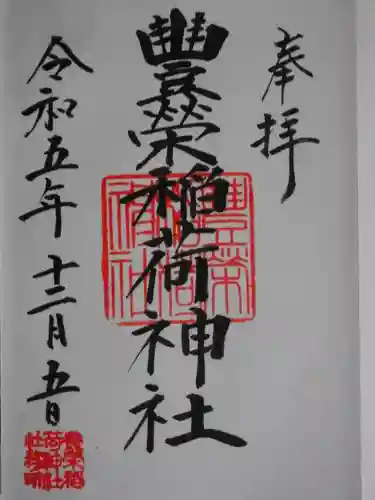 奉拝
豊榮稲荷神社
令和五年十二月五日